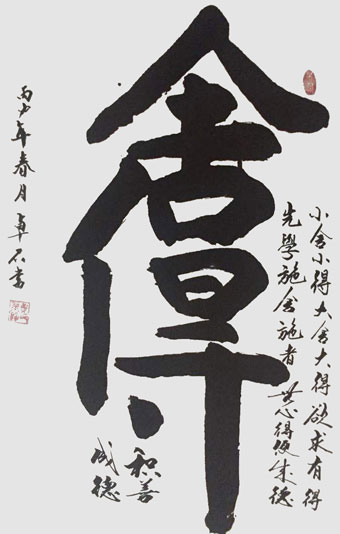 舍得
小舍小得大舍大得欲求有得
先學施舍施者心得後成德
和善
成德
年春月卓石書